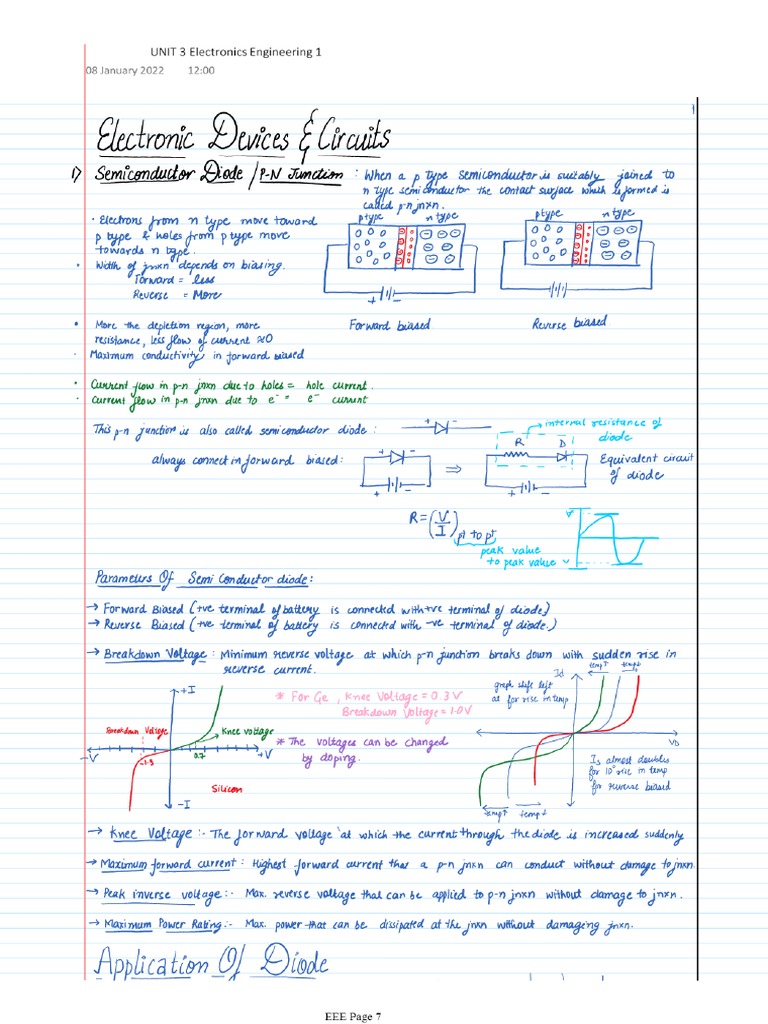 UNIT 3 Electronics Engineering 1
08 January 2022 12:00
1
Electronic Devices & Circuits
1) Semiconductor Diode / P-N Junction : When a p type semiconductor is suitably joined to
n type semiconductor the contact surface which is formed is
called p-n jnxn.
• Electrons from n type move toward
p type & holes from p type move
towards n type.
• Width of jnxn depends on biasing.
Forward = less
Reverse = More
p type n type
+ -
Forward biased
p type n type
Reverse biased
• More the depletion region, more
resistance, less flow of current ≈0
• Maximum conductivity in forward biased
• Current flow in p-n jnxn due to holes = hole current.
• Current flow in p-n jnxn due to e⁻ = e⁻ current
This p-n junction is also called semiconductor diode :
+ -
internal resistance of
diode
R D
always connect in forward biased :
+ -
+ -
⇒
+ -
Equivalent circuit
of diode
R = (V/I) pt to pt
peak value
to peak value
Parameters Of Semi Conductor diode :
→ Forward Biased (+ve terminal of battery is connected with +ve terminal of diode)
→ Reverse Biased (+ve terminal of battery is connected with -ve terminal of diode.)
→ Breakdown Voltage : Minimum reverse voltage at which p-n junction breaks down with sudden rise in
reverse current.
+I
Breakdown Voltage
Knee voltage
-V
-1.3
0.7
+V
Silicon
-I
* For Ge, Knee Voltage = 0.3 V
Breakdown Voltage = 1.0V
* The voltages can be changed
by doping.
temp↑ temp↓
Id
graph shift left
at for rise in temp
VD
Is almost doubles
for 10° rise in temp
for reverse biased
temp↑ temp↓
→ Knee Voltage :- The forward voltage at which the current through the diode is increased suddenly
→ Maximum forward current : Highest forward current that a p-n jnxn can conduct without damage to jnxn.
→ Peak inverse voltage :- Max. reverse voltage that can be applied to p-n jnxn without damage to jnxn.
→ Maximum Power Rating :- Max. power that can be dissipated at the jnxn without damaging jnxn.
Application Of Diode
EEE Page 7